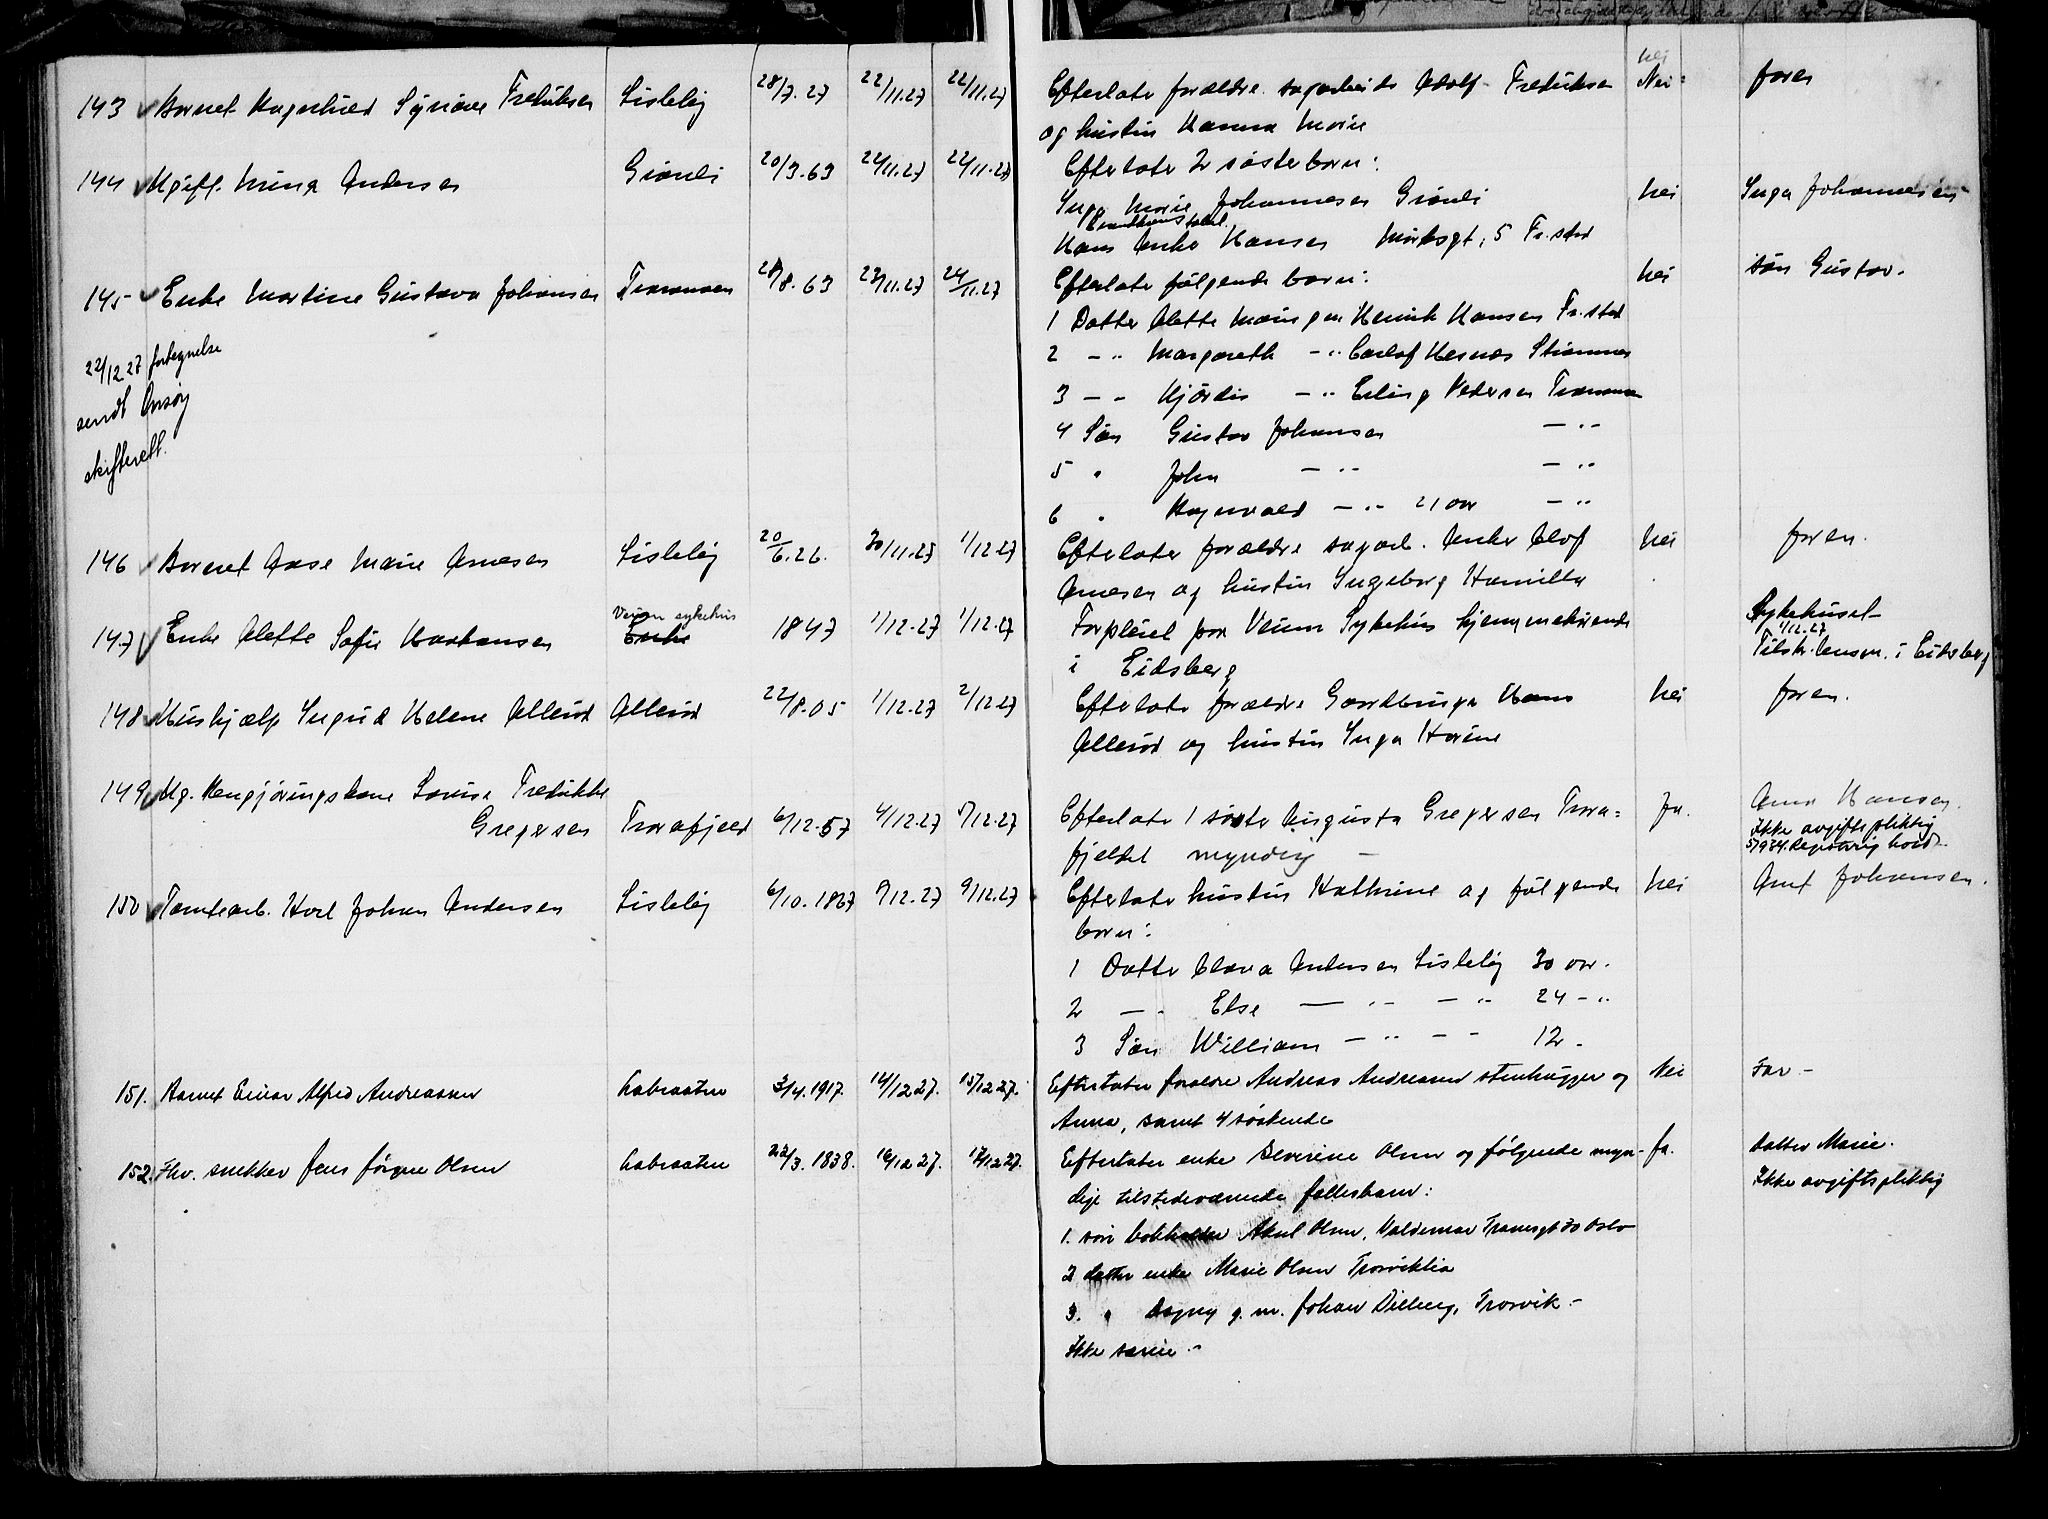 143 Barnet Ragnhild Synøve Fredriksen Lisleby 28/7.27 22/11.27 22/11.27 Efterlater forældre sagarbeider Adolf Fredriksen Nei faren
og hustru Hanna Marie
144 Ugift Mina Andersen Grønli 20/3.63 22/11.27 22/11.27 Efterlater 2 søsterbarn:
Inga Marie Johannesen Grønli nei Inga Johannesen
Hans Anker Hansen gt. 5 Fr.stad
145 Enke Martine Gustava Johansen Traranaen 8.63 23/11.27 24/11.27 Efterlater følgende barn: nei søn Gustav.
1 Datter Alette Hansen Fr.stad
22/12 27 fortegnelse
2 - " Margareth - " Strømmen
sendt Onsøy
3 - - Hjørdis - " Erling Pedersen
skifterett.
4 Søn Gustav Johansen - "
5 " John - " - "
6 " Ragnvald - " 21 aar - "
146 Barnet Aase Marie Arnesen Lisleby 20/6.26. 30/11.27 1/12.27 Efterlater forældre sagarb. Anker Olof nei faren.
Arnesen og hustru Ingeborg Kamilla
147 Enke Alette Sofie Haakensen Veum sykehus Enke 1847 1/12.27 1/12.27 Forpleiet paa Veum Sykehus hjemmehørende Sykehuset
i Eidsberg 1/12.27 Tilskr. lensm. i Eidsberg
148 Hushjælp Sigrid Helene Ållerød Ållerød 22/8.05 1/12.27 2/12.27 Efterlater forældre Gaardbruger Hans nei faren.
Ållerød og hustru Inga
149 Ug. Rengjøringskone Lovise Fredrikke
Gregersen Trarafjeld 6/12.57 4/12.27 5/12.27 Efterlater 1 søster Augusta Gregersen Trara= ja. Anna Hansen.
fjeldet myndig - Ikke avgiftspliktig
150 Tomtearb. Karl Johan Andersen Lisleby 6/10.1867 9/12.27 9/12.27 Efterlater hustru Kathrine og følgende nei Arnt Johansen.
barn:
1 Datter Clara Andersen Lisleby 30 aar.
2 - - Else - " - " 24 - "
3 Søn William - " - - 12 -
151. Barnet Einar Alfred Andreassen Labraaten 3/4.1917. 14/12 27. 15/12 27. Efterlater foreldre Andreas Andreassen stenhugger og Nei Far -
Anna, samt 4 søskende
152. Fhv. snekker Jens Jørgen Olsen Labraaten 22/3. 1838. 16/12 27. 17/12 27. Efterlater enke Severine Olsen og følgende myn- Ja. Datter Marie.
dige tilstedeværende fellesbarn: Ikke avgiftspliktig
1. søn bokholder Aksel Olsen, Valdemar Thranesgt 30 Oslo
2 datter enke Marie Olsen Trosviklia
3. " Dagny g. m. Johan Dilling, Trosvik. -
Ikke særeie -